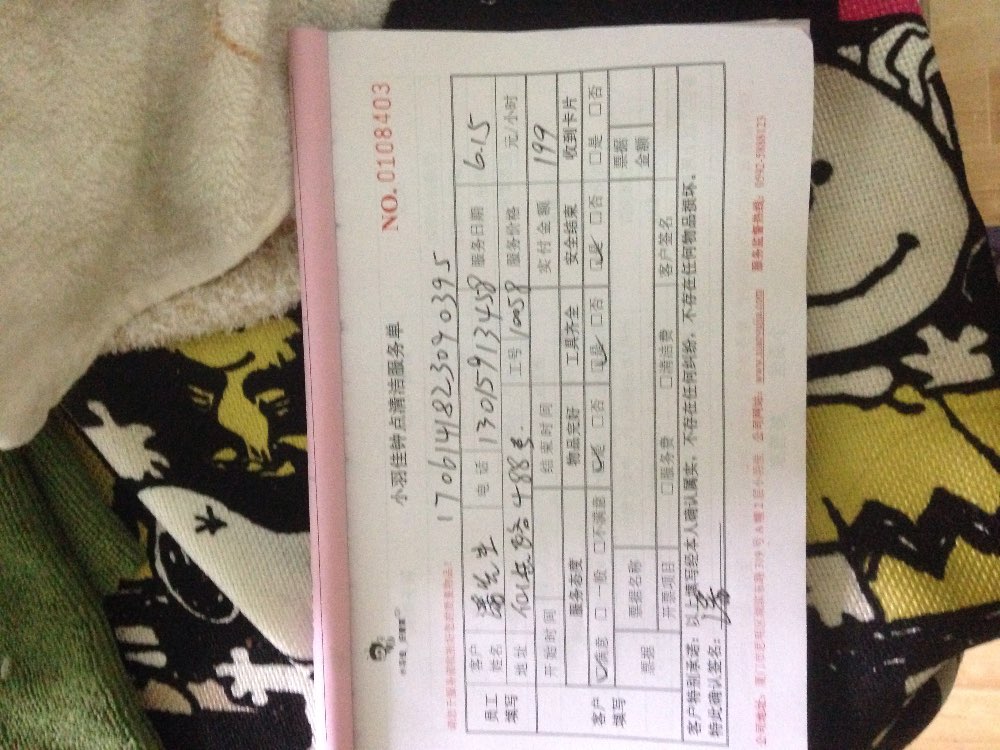 小羽佳钟点清洁服务单
NO.0108403
1706141823090395
员工填写 客户姓名 潘先生 电话 13015913458 服务日期 6.15
地址 仙岳路488号 工号 10058 服务价格 元/小时
开始时间 结束时间 实付金额 199
客户填写 服务态度 物品完好 工具齐全 安全结束 收到卡片
☑满意 □一般 □不满意 ☑是 □否 ☑是 □否 ☑是 □否 □是 □否
票据 票据名称 票据金额
开票项目 □服务费 □清洁费 客户签名
客户特别承诺：以上填写经本人确认属实，不存在任何纠纷，不存在任何物品损坏。
特此确认签名：
公司地址： 309号A幢2层小羽佳 公司网站： 服务监督热线：0592-5888123